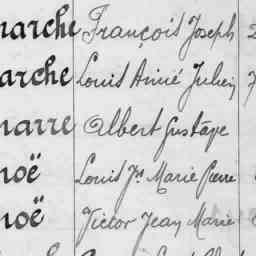 marche François Joseph 2
arche Louis Aimé Julien 7
marre Albert Gustave
noë Louis Jn Marie Pierre
noë Victor Jean Marie